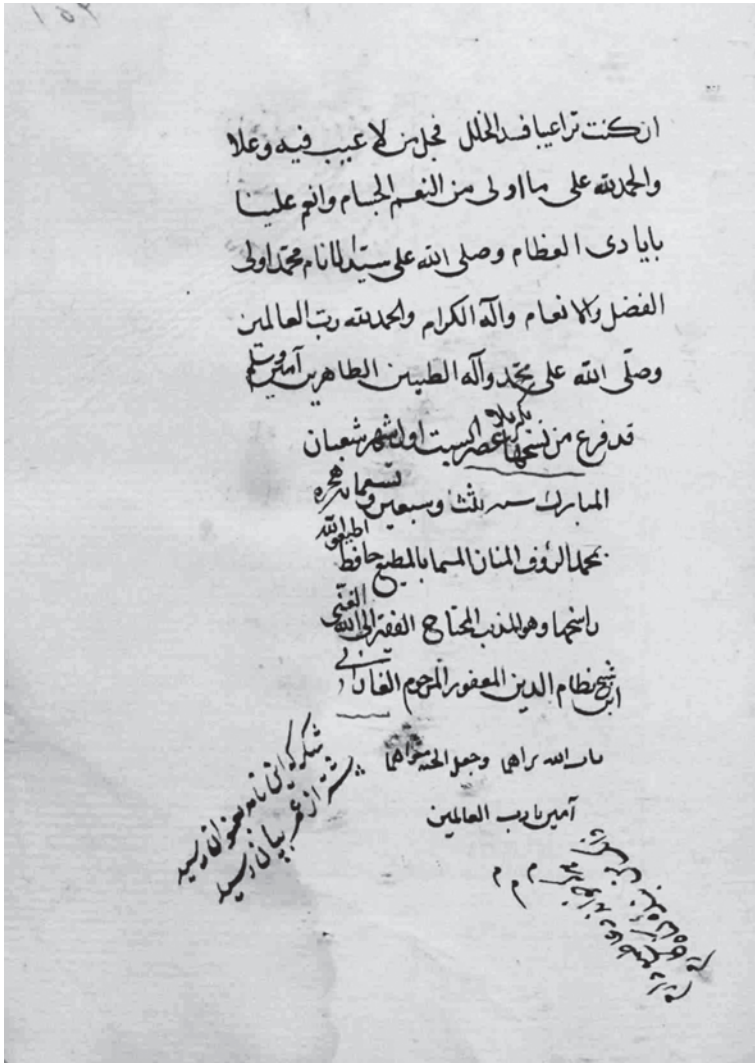 ان كنت تر اعيبا فسد الخلل فجل من لا عيب فيه وعلا
والحمد لله على ما اولى من النعم الجسام وانعم علينا
بايادى العظام وصلى الله على سيد الانام محمد اولى
الفضل والانعام وآله الكرام والحمد لله رب العالمين
وصلّى الله على محمّد وآله الطيبين الطاهرين آمين وسلم
قد فرغ من نسخها بكربلا عصر السبت اول شهر شعبان
المبارك سنه ثلث وسبعين وتسعمائه هجره
بحمد الرؤف المنان المسما بالمطيع حافظ
ناسخها وهو المذنب المحتاج الفقير الى الله الغنّى
ابن شيخ نظام الدين المغفور المرحوم
الله ثراهما وجعل الجنة مثواهما
آمين يا رب العالمين
شكر كه اين نامه بعنوان رسيد
پيشتر از عمر بپايان رسيد
هر كه خواند دعا طمع دارم
زانكه من بنده گنه كارم
م م م